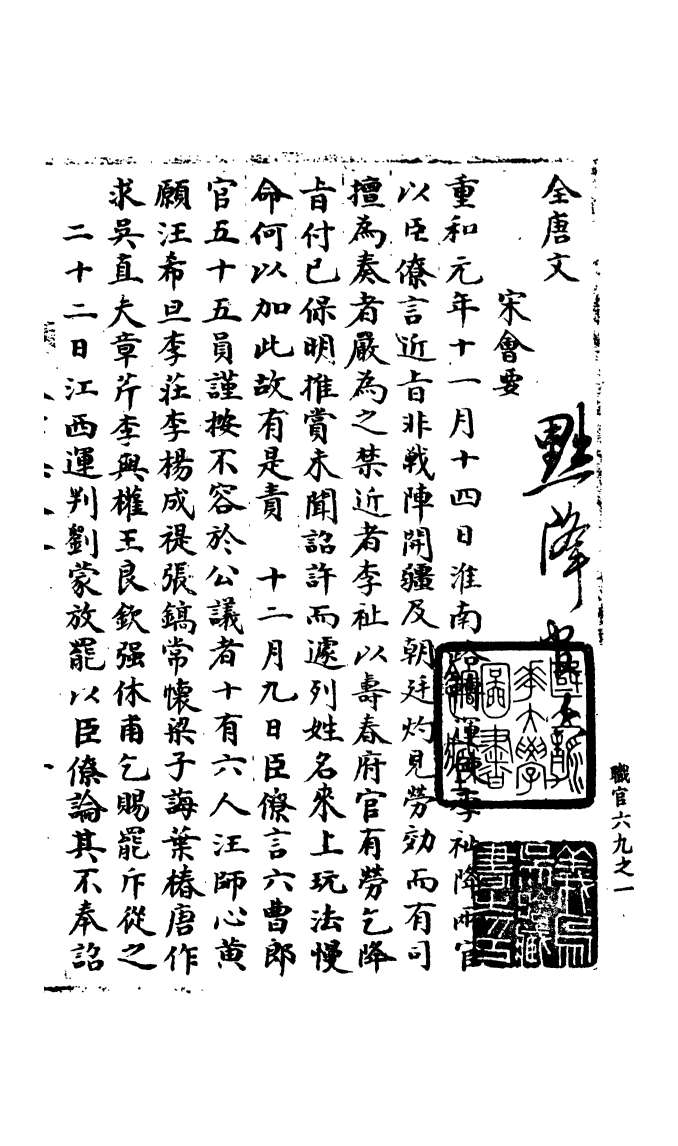 全唐文
宋會要
黜降官
重和元年十一月十四日淮南路轉運陳李祉降兩官
以臣僚言近旨非戰陣開疆及朝廷灼見勞効而有司
擅為奏者嚴為之禁近者李祉以壽春府官有勞乞降
旨付已保明推賞未聞詔許而遽列姓名來上玩法慢
命何以加此故有是責　十二月九日臣僚言六曹郎
官五十五員謹按不容於公議者十有六人汪師心黃
願汪希旦李莊李楊成禔張鎬常懷梁子誨葉椿唐作
求吳直夫章芹李與權王良欽强休甫乞賜罷斥從之
二十二日江西運判劉蒙放罷以臣僚論其不奉詔
職官六九之一